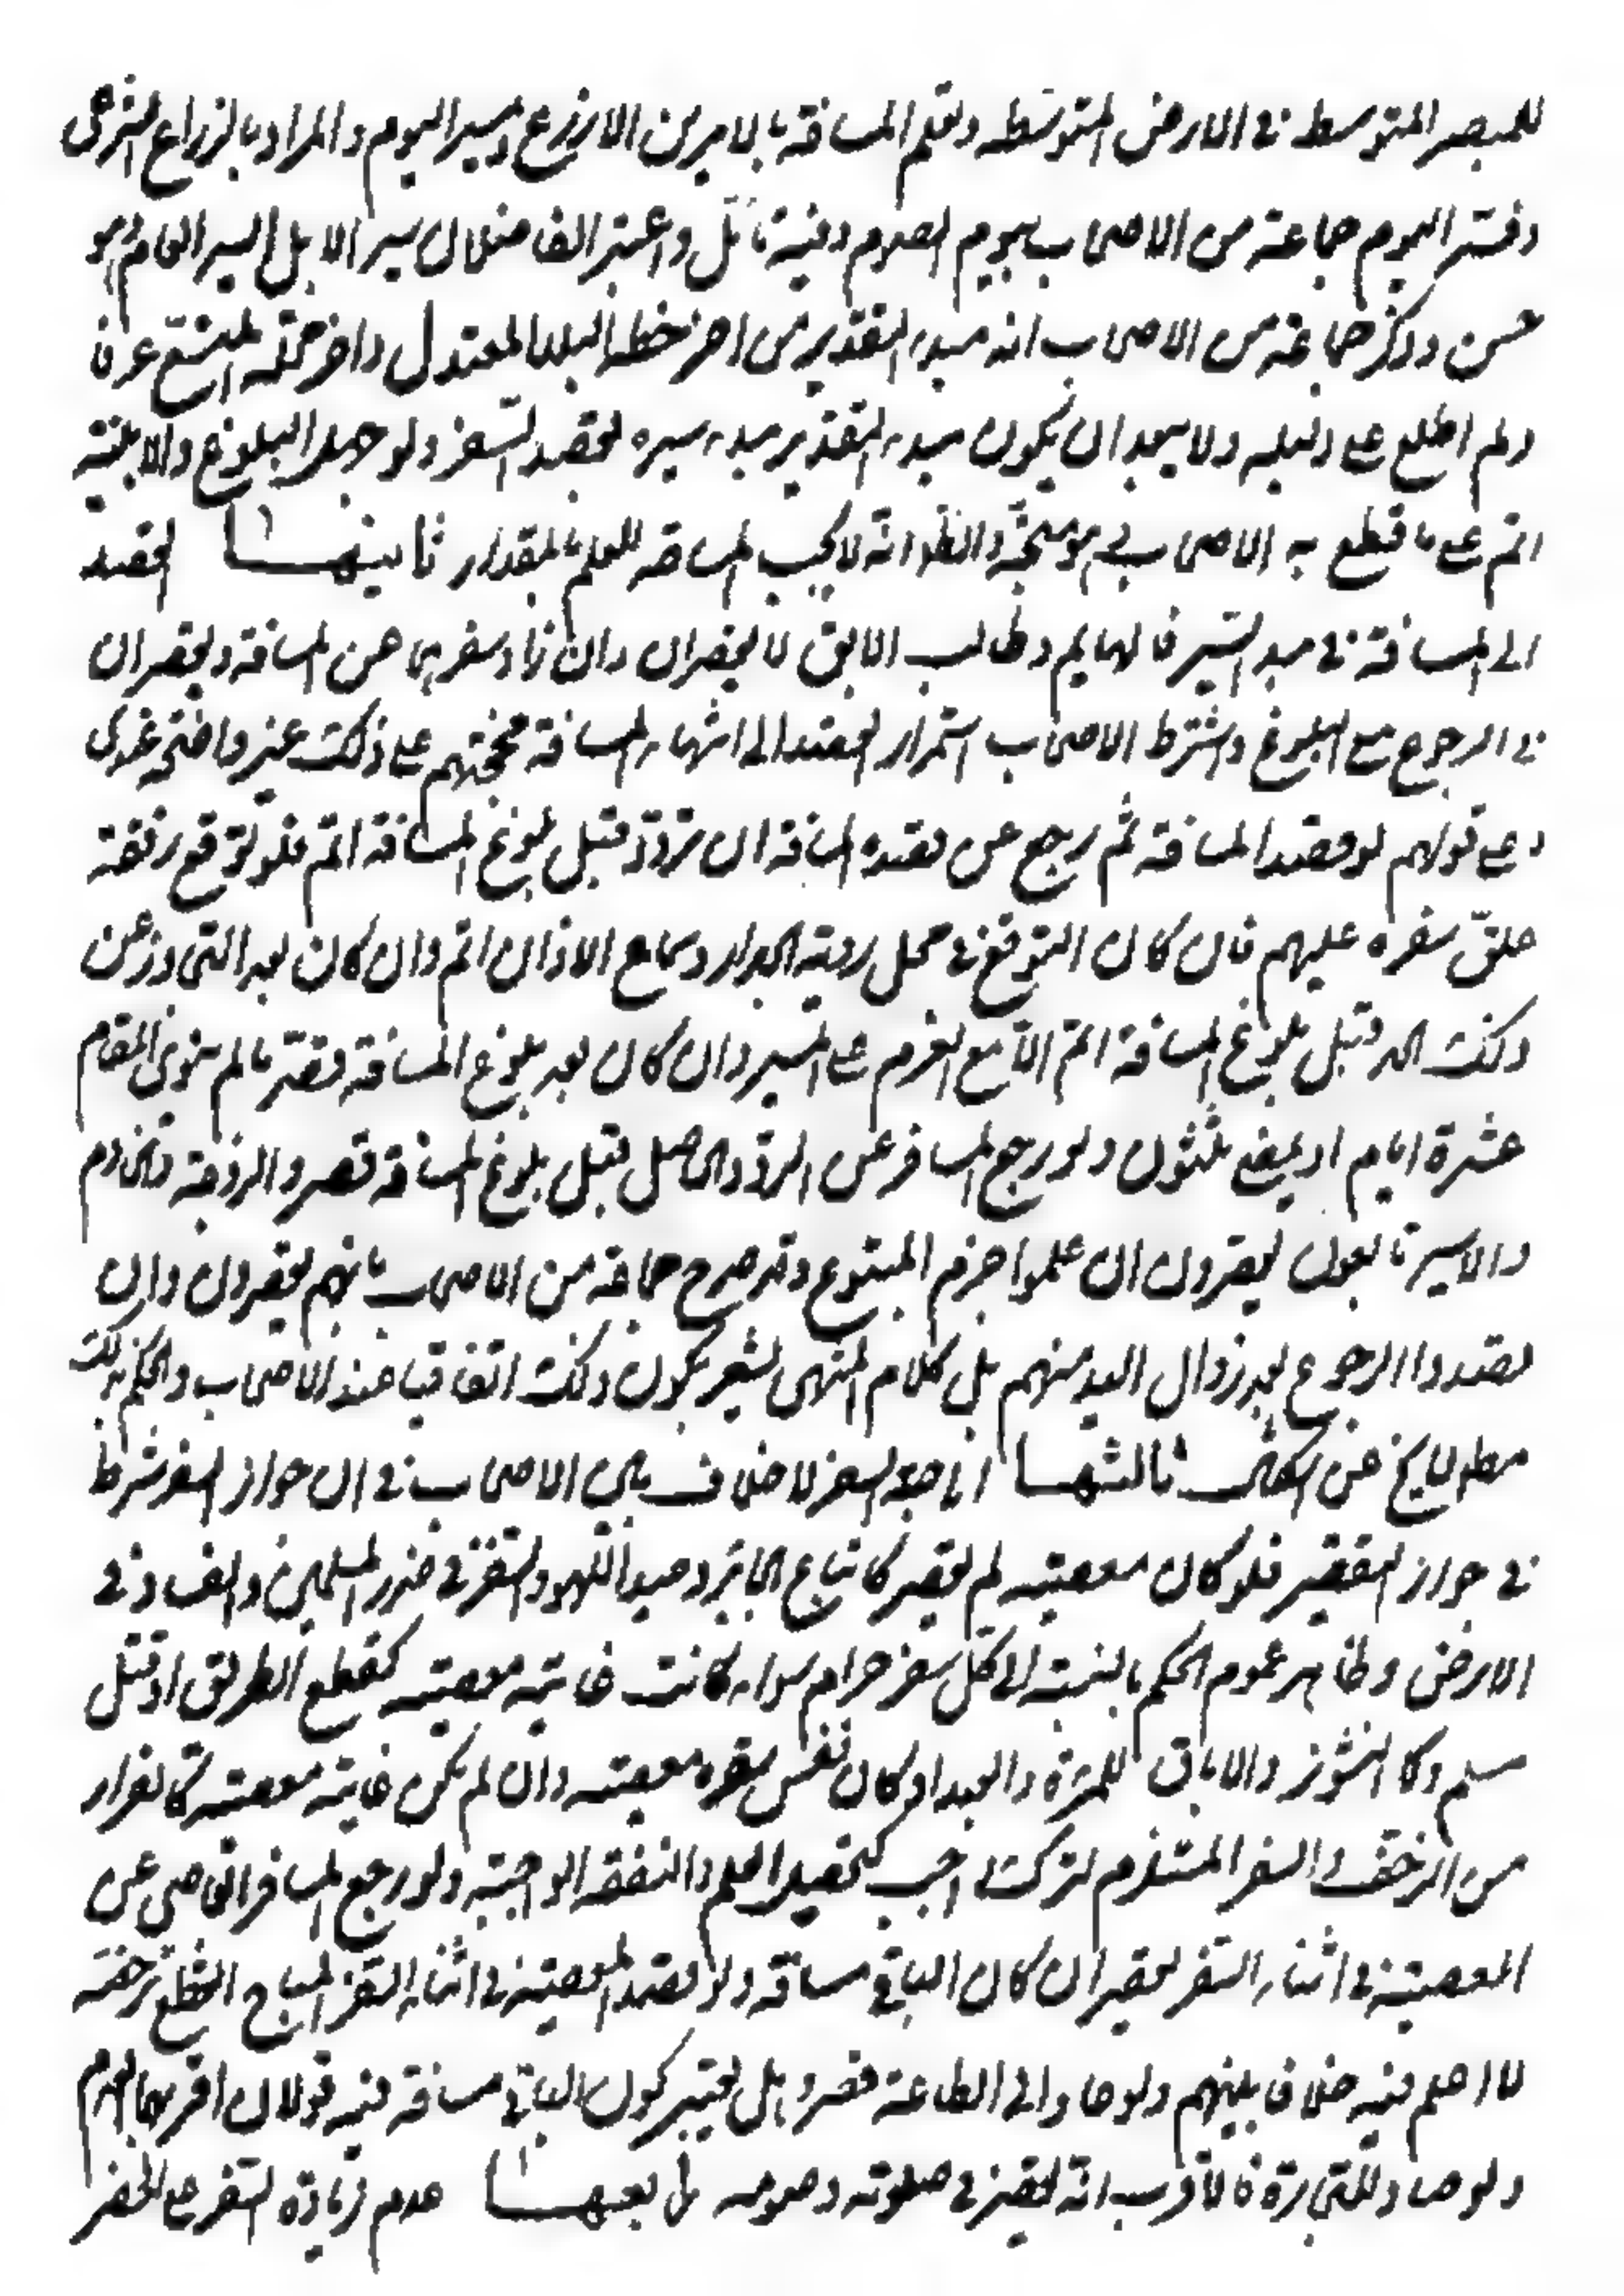 للمبصر المتوسط في الارض المتوسطه وتعلم المسافة بالامرين الاذرع ومسير اليوم والمراد بالذراع الشرعي
وفسّر اليوم جماعة من الاصحاب بيوم الصوم وفيه تامّل واعتبر الفاضلان سير الابل السير العام وهو
حسن وذكر جماعة من الاصحاب انه مبدء التقدير من اخر خطة البلد المعتدل واخر محلّته المتّسع عرفا
ولم اطلع على دليله ولا يبعد ان يكون مبدء التقدير مبدء سيره لقصد السّفر ولو جهل البلوغ والا بيّنة
اتم على ما قطع به الاصحاب وهو متّجه والظّ انّه لا يجب المساحة للعلم بالمقدار ثانيها القصد
الى المسافة في مبدء السّير فالهايم وطالب الابق لا يقصران وان زاد سفرهما عن المسافة ويقصران
في الرجوع مع البلوغ واشترط الاصحاب استمرار القصد الى انتهاء المسافة وحجّتهم على ذلك غير واضح عندي
وعلى قولهم لو قصد المسافة ثم رجع عن قصده المسافة او تردّد قبل بلوغ المسافة اتم فلو توقع رفقة
علّق سفره عليهم فان كان التوقع في محل روية الجدار وسماع الاذان اتم وان كان بعد التجاوز عن
ذلك الحد وقبل بلوغ المسافة اتم الّا مع العزم على المسير وان كان بعد بلوغ المسافة قصّر ما لم ينوي المقام
عشرة ايام او يمضي ثلثون ولو رجع المسافر عن التردّد الحاصل قبل بلوغ المسافة قصر والزوجة والخادم
والاسير تابعون يقصرون ان علموا جزم المتبوع وقد صرح جماعة من الاصحاب بانهم يقصرون وان
قصدوا الرجوع بعد زوال اليد عنهم بل كلام المنتهى يشعر بكون ذلك اتفاقيا عند الاصحاب والحكم بذلك
مطلقا لا يخ عن اشكال ثالثها اباحة السفر لا خلاف بين الاصحاب في ان جواز السفر شرط
في جواز التقصير فلو كان معصيته لم يقصر كاتباع الجائر وصيد اللهو والسّفر في ضرر المسلمين والفساد في
الارض وظاهر عموم الحكم بالنسبة الى كلّ سفر حرام سواء كانت غايته معصيته كقطع الطريق او قتل
مسلم وكالنشوز والاباق للمرئة والعبد او كان نفس سفره معصيته وان لم يكن غايته معصيته كالفرار
من الزحف والسفر المستلزم لترك واجب كتحصيل العلم والنفقة الواجبة ولو رجع المسافر العاصي عن
المعصيته في اثناء السّفر يقصر ان كان الباقي مسافة ولو قصد المعصيته في اثناء السّفر المباح انقطع ترخصه
لا اعلم فيه خلافا بينهم ولو عاد الى الطاعة قصر وهل يعتبر كون الباقي مسافة فيه قولان اقربهما العدم
ولو صاد للتجارة فالاقرب انّه يقصر في صلوته وصومه رابعها عدم زيادة السّفر على الحضر